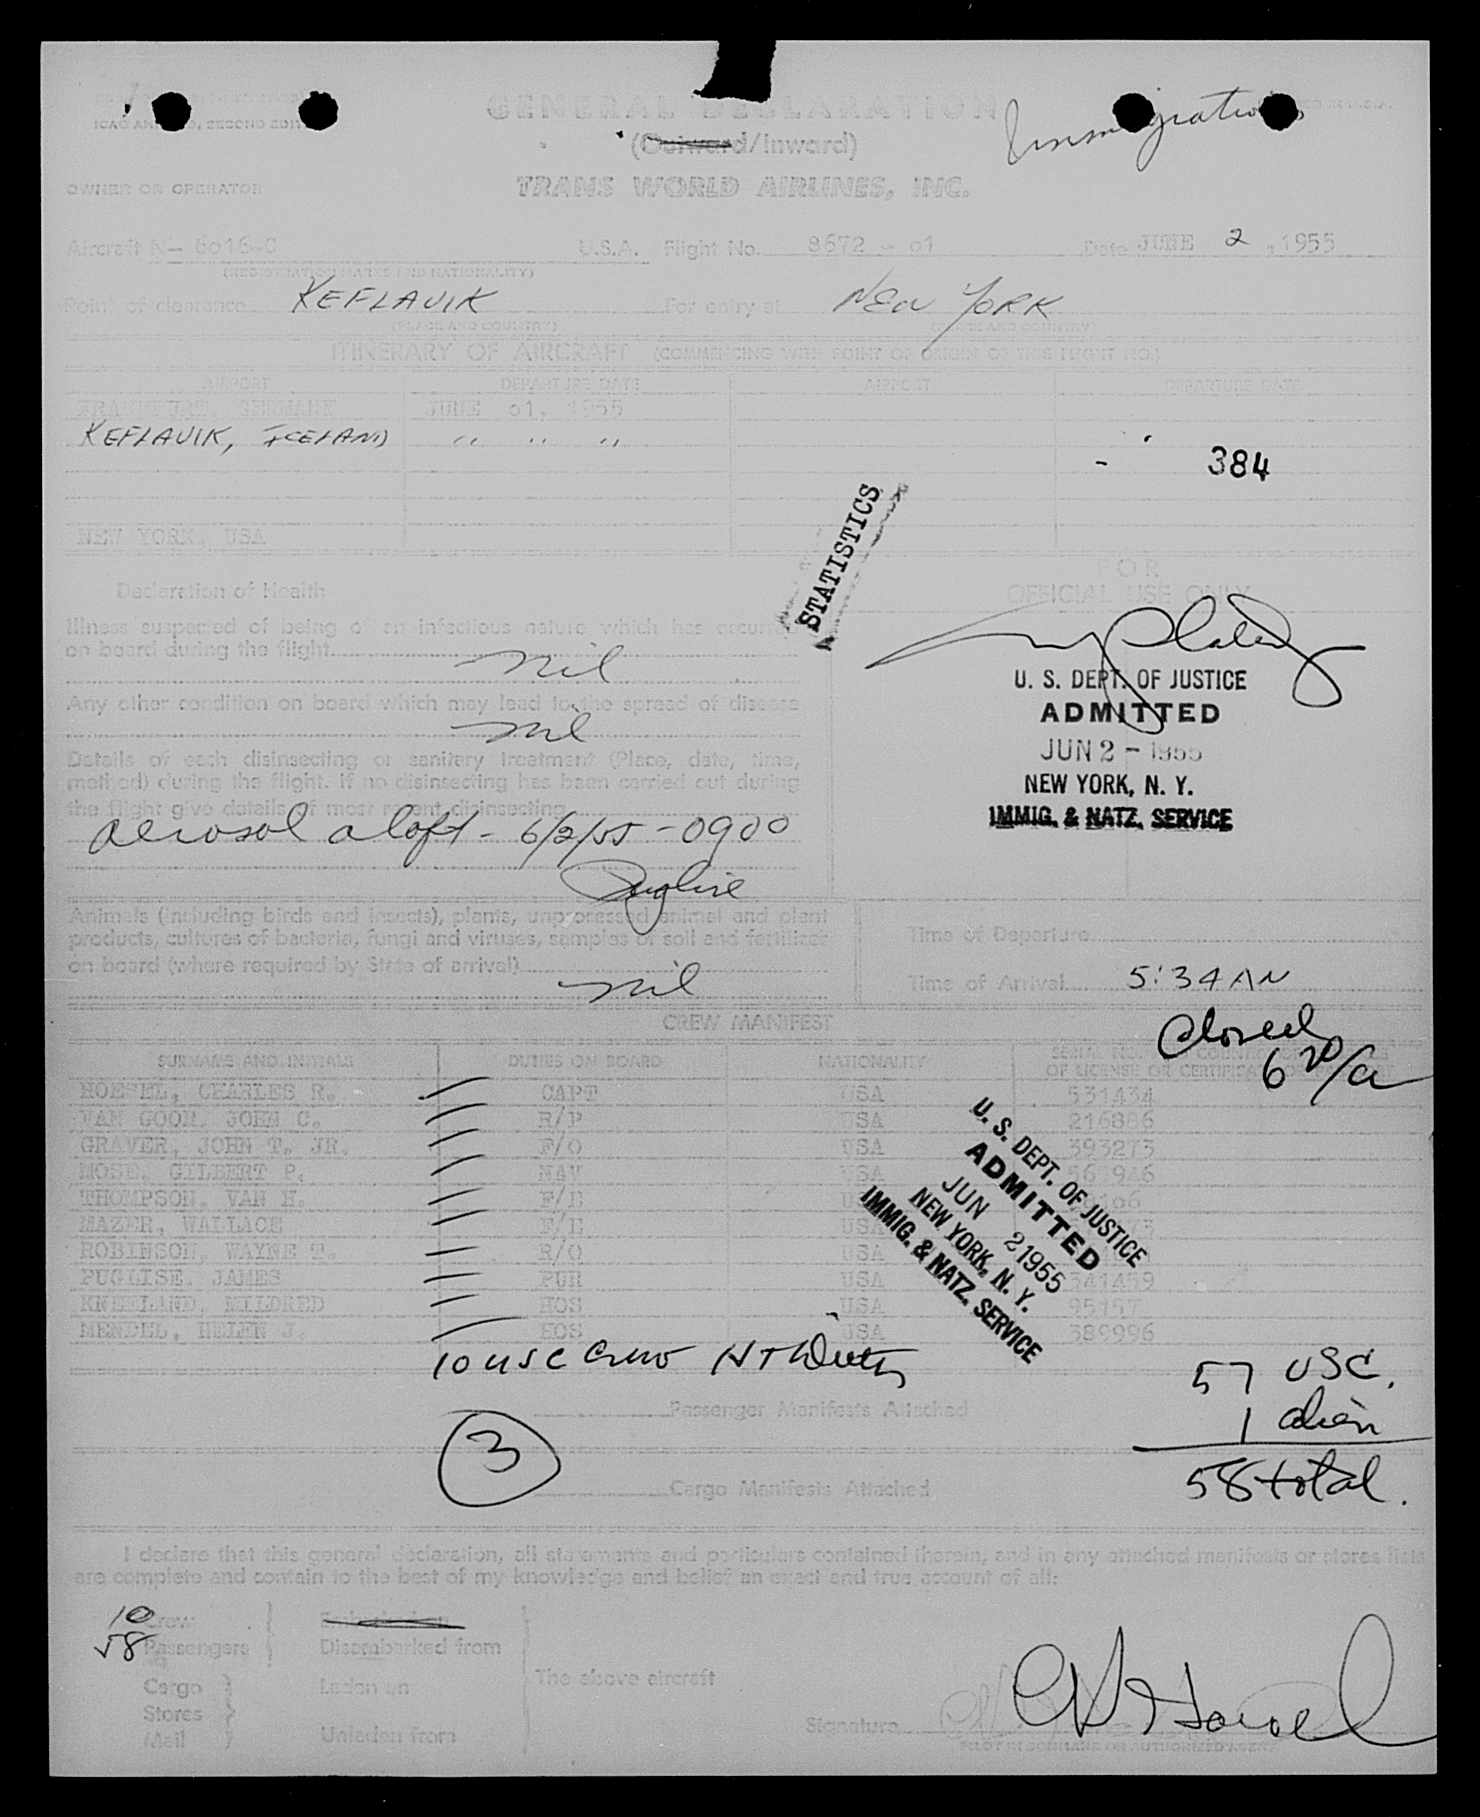 GENERAL DECLARATION
Immigration
(Outward/Inward)
OWNER OR OPERATOR
TRANS WORLD AIRLINES, INC.
Aircraft N- 6016-C U.S.A. Flight No. 8672 - 01 Date JUNE 2, 1955
(REGISTRATION MARKS AND NATIONALITY)
Point of clearance KEFLAVIK For entry at NEW YORK
(PLACE AND COUNTRY) (PLACE AND COUNTRY)
ITINERARY OF AIRCRAFT (COMMENCING WITH POINT OF ORIGIN OF THIS FLIGHT NO.)
AIRPORT DEPARTURE DATE AIRPORT DEPARTURE DATE
FRANKFURT, GERMANY JUNE 01, 1955
KEFLAVIK, ICELAND " " "
384
STATISTICS
NEW YORK, USA
FOR
OFFICIAL USE ONLY
Declaration of Health
Illness suspected of being of an infectious nature which has occurred
on board during the flight
nil
Any other condition on board which may lead to the spread of disease
nil
Details of each disinsecting or sanitary treatment (Place, date, time,
method) during the flight. If no disinsecting has been carried out during
the flight give details of most recent disinsecting
aerosol aloft - 6/2/55 - 0900
Puglise
U. S. DEPT. OF JUSTICE
ADMITTED
JUN 2 - 1955
NEW YORK, N. Y.
IMMIG. & NATZ. SERVICE
Animals (including birds and insects), plants, unprocessed animal and plant
products, cultures of bacteria, fungi and viruses, samples of soil and fertilizer
on board (where required by State of arrival)
nil
Time of Departure
Time of Arrival 5:34 AM
Closed
6 20/a
CREW MANIFEST
SURNAME AND INITIALS DUTIES ON BOARD NATIONALITY
OF LICENSE OR CERTIFICATE
HOESEL, CHARLES R. CAPT USA 531434
VAN GOOR JOHN C. R/P USA 216886
GRAVER, JOHN T. JR. F/O USA 393273
MOSE, GILBERT P. NAV USA
THOMPSON, VAN H. F/E
MAZER, WALLACE F/E USA
ROBINSON, WAYNE T. R/O USA
PUGLISE, JAMES PUR USA 341459
KNEELAND, MILDRED HOS USA 95157
MENDEL, HELEN J HOS USA 389996
U. S. DEPT. OF JUSTICE
ADMITTED
JUN 2 1955
NEW YORK, N. Y.
IMMIG. & NATZ. SERVICE
10 USC Crew
57 USC.
1 alien
58 total.
Passenger Manifests Attached
3
Cargo Manifests Attached
I declare that this general declaration, all statements and particulars contained therein, and in any attached manifests or stores lists
are complete and contain to the best of my knowledge and belief an exact and true account of all:
10 Crew
58 Passengers Disembarked from
Cargo Laden on
Stores
Mail Unladen from
The above aircraft
Signature
PILOT IN COMMAND OR AUTHORIZED AGENT